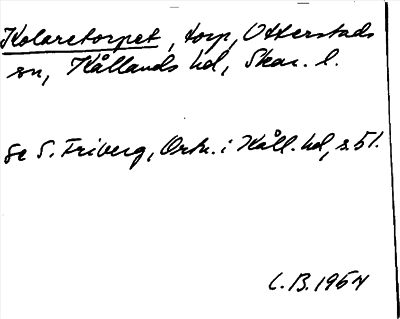 Kolaretorpet, torp, Otterstads
sn, Kållands hd, Skar. l.
Se S. Friberg, Ortn. i Kåll. hd, s. 51.
C.B. 1954